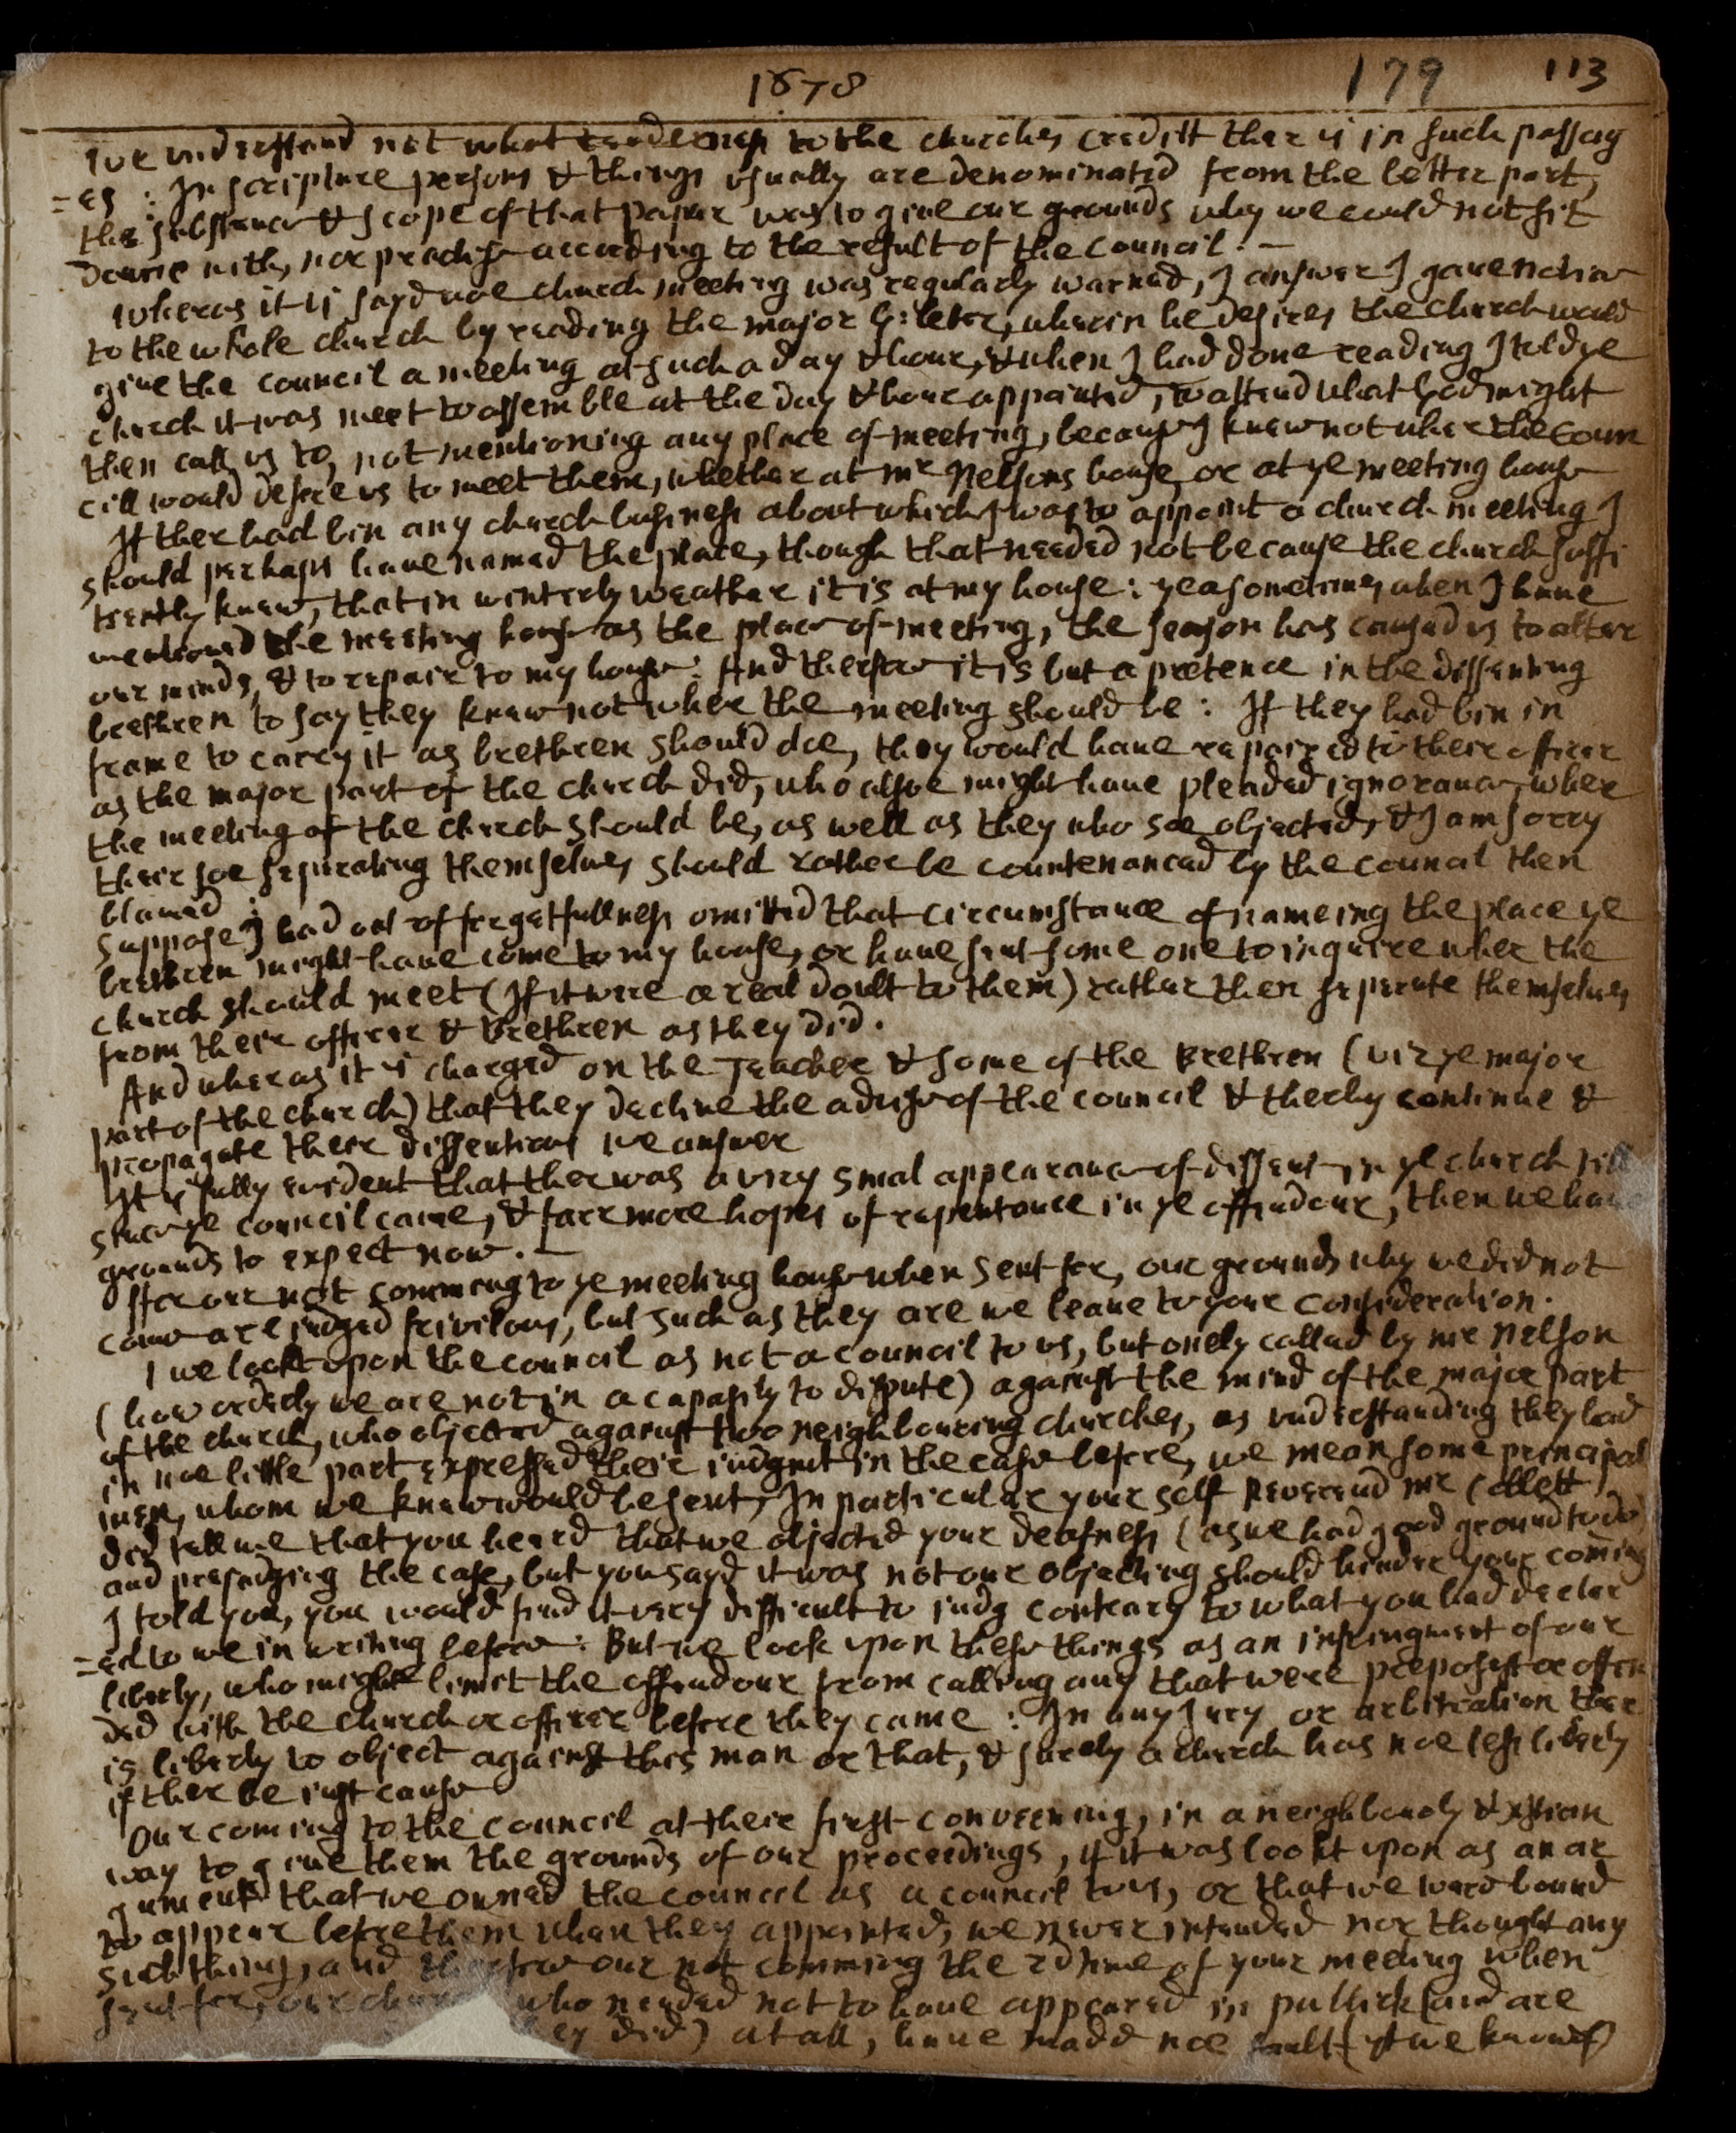 1678 179 113
we understand not what tendernes to the churches creditt ther is in such passag
=es : In scripture persons & things usually are denominated from the better part,
the substance & scope of that paper was to give our grounds why we could not sit
downe with, nor practise according to the result of the council. —
Wheras it is sayd noe church meeting was regularly warned, I answer I gave notice
to the whole church by reading the major G: letter, wherin he desires the church would
give the council a meeting at such a day & hour, & when I had done reading I told ye
church it was meet to assemble at the day & hour appointed, to attend what God might
then call us to, not mentioning any place of meeting, because I knew not wher the Coun
cill would desire us to meet them, whether at mr Nelsons house, or at ye meeting house
If ther had bin any church business about which I was to appoint a church meeting I
should perhaps have named the place, though that needed not because the church suffi
tiently knew, that in winterly weather it is at my house : yea sometimes when I have
mentioned the meeting house as the place of meeting, the season has caused us to alter
our minds, & to repair to my house : And therfore it is but a pretence in the dissenting
brethren to say they knew not wher the meeting should be : If they had bin in
frame to carry it as brethren should doe, they would have repaired to there officer
as the major part of the church did, who alsoe might have pleaded ignorance, wher
the meeting of the church should be, as well as they who soe objected, & I am sorry
their soe seperating themselves should rather be countenanced by the council then
blamed :
Suppose I had out of forgetfullness omitted that circumstance of nameing the place ye
brethren might have come to my house, or have sent some one to inquire wher the
church should meet (If it were a real doubt to them) rather then seperate themselves
from their officer & Brethren as they did.
And wheras it is charged on the Teacher & some of the Brethren (viz ye major
part of the church) that they decline the advise of the council & therby continue &
propagate there dissentions we answer
It is fully evident that ther was a very smal appearance of dissent in ye church till
since ye council came, & farr more hopes of repentance in ye offendour, then we have
grounds to expect now. —
ffor our not comming to ye meeting house when sent for, our grounds why we did not
come are judged frivilous, but such as they are we leave to your consideration.
1 we lookt upon the council as not a council to us, but onely called by mr Nelson
(how orderly we are not in a capasity to dispute) against the mind of the major part
of the church, who objected against two neighbouring churches, as understanding they had
in noe little part expressed their judgmt in the case before, we mean some principal
men, whom we knew would be sent, In particular your self Reverend mr Cobbett
did tell me that you heard that we objected your deafness (as we had good ground to do)
and prejudging the case, but you sayd it was not our objecting should hinder your coming
I told you, you would find it very difficult to judg contrary to what you had declar
=ed to me in writing before : But we look upon these things as an infringment of our
liberty, who might limit the offendour from calling any that were preposest or offen
ded with the church or officer before they came : In any Jury or arbitration ther
is liberty to object against this man or that, & surely a church has noe less liberty
if ther be just cause
Our coming to the council at there first conveening, in a neighbourly & xstian
way to give them the grounds of our proceedings, if it was lookt upon as an ar
gument that we owned the council as a council to us, or that we were bound
to appear before them when they appointed, we never intended nor thought any
such thing, and therfore our not comming the 2d time of your meeting when
sent for, our church who needed not to have appeared in publick (and are
ey did) at all, have made noe fault (yt we know of)